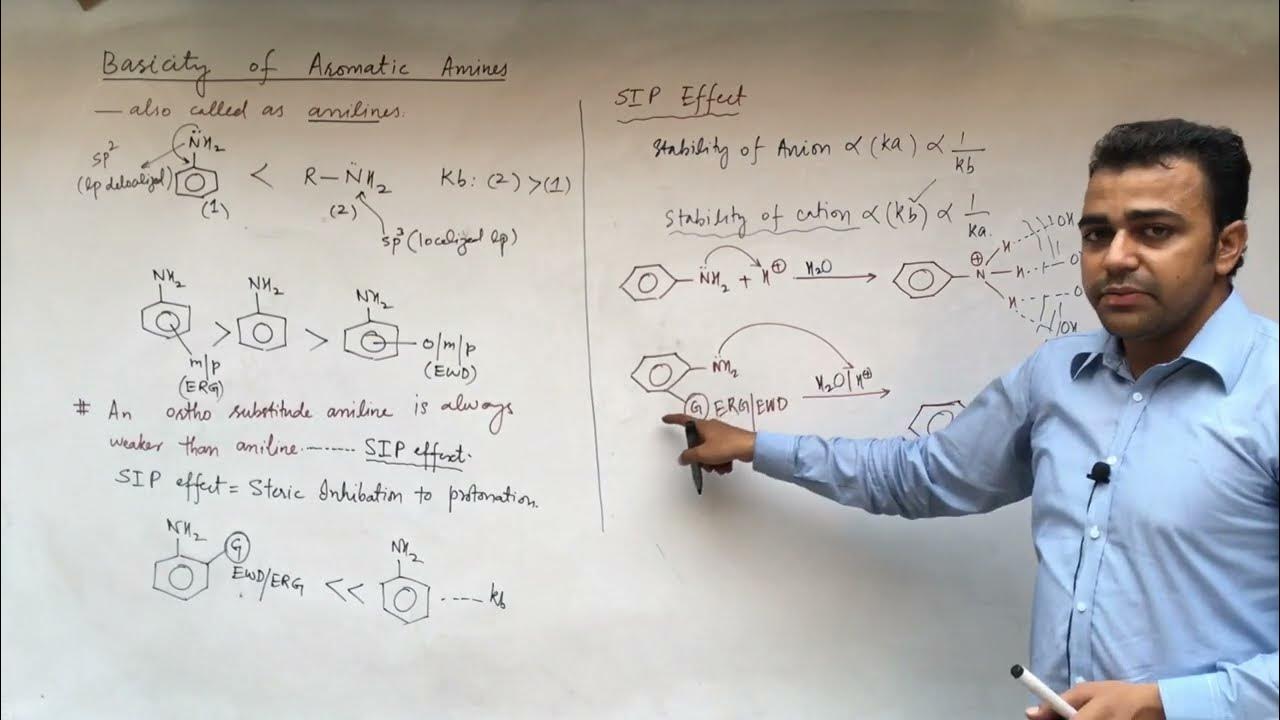 Basicity of Aromatic Amines
— also called as anilines.
sp²
(lp delocalized)
N̈H₂
(1)
<
R—N̈H₂
(2)
Kb: (2) > (1)
sp³ (localized lp)
NH₂
m/p
(ERG)
>
NH₂
>
NH₂
o/m/p
(EWD)
# An ortho substitude aniline is always
weaker than aniline.------ SIP effect.
SIP effect = Steric Inhibation to protonation.
NH₂
G
EWD/ERG
<<
NH₂
---- kb
SIP Effect
Stability of Anion ∝ (ka) ∝ 1/kb
Stability of cation ∝ (kb) ∝ 1/ka.
N̈H₂ + H⊕ H₂O →
⊕
N
H
H
H
OH
O
O
OH
N̈H₂
G ERG/EWD
H₂O/H⊕ →